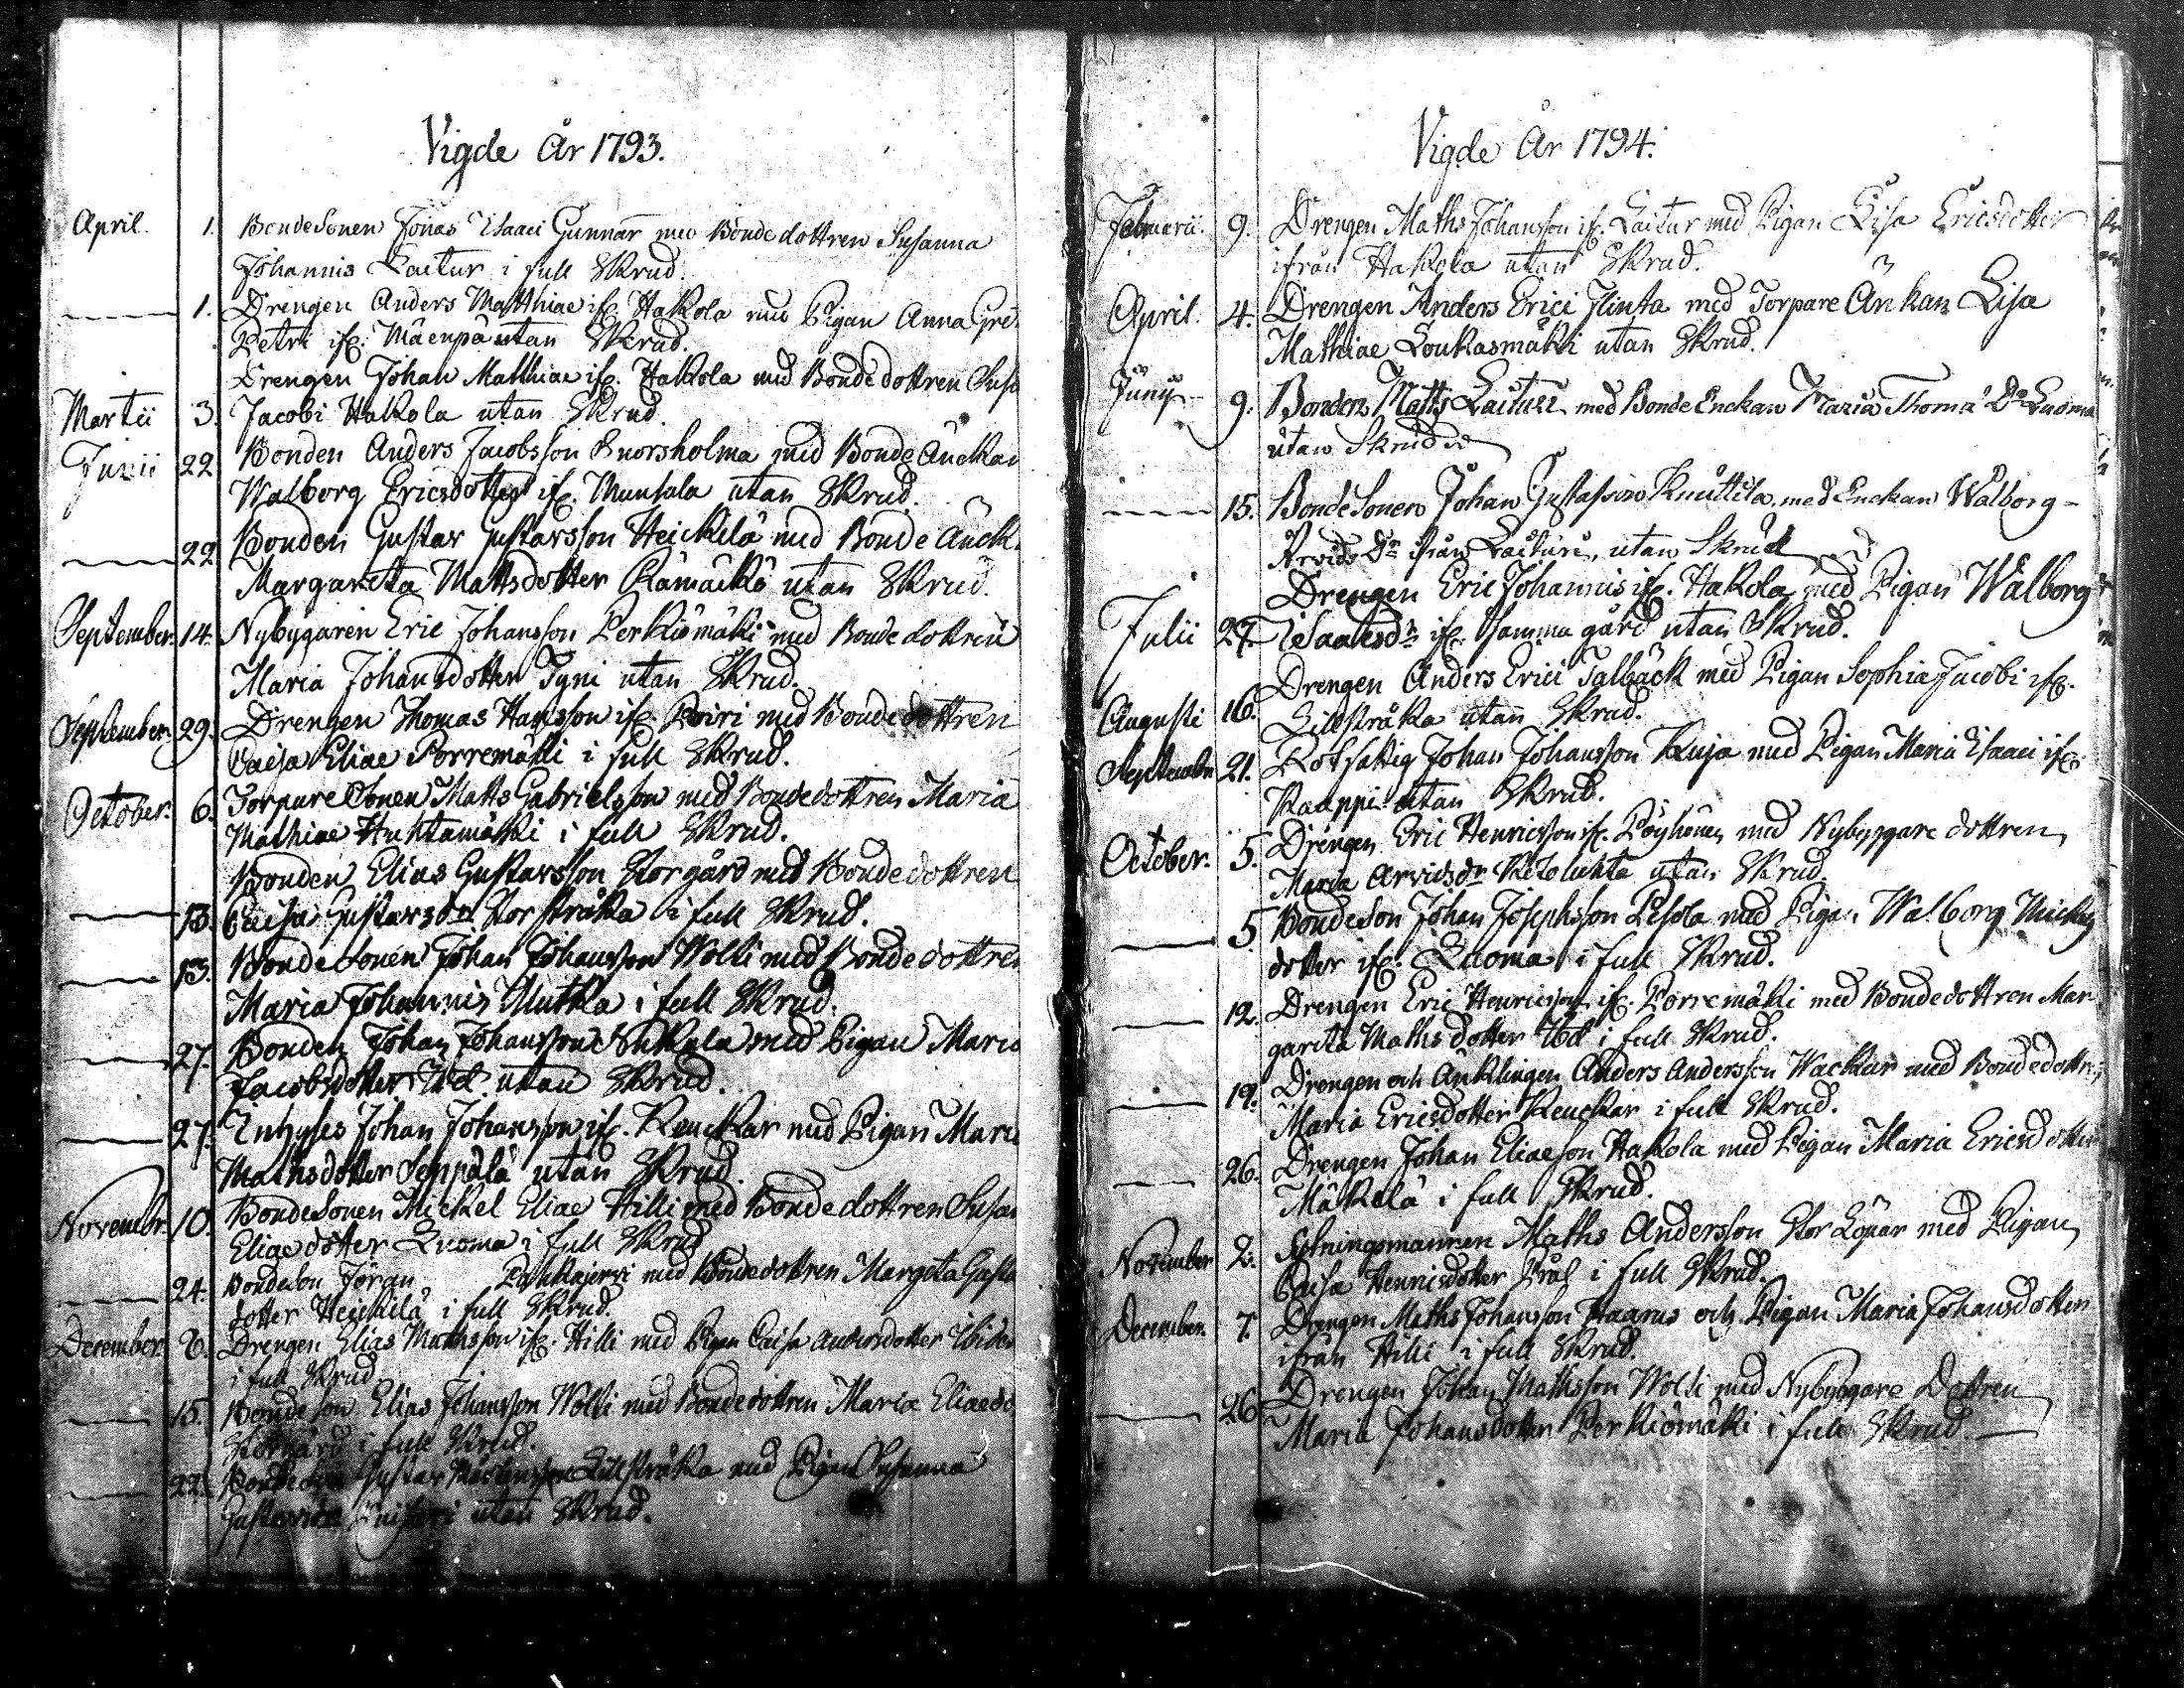 Vigde År 1793.
April. 1. BondeSonen Jonas Isaaci Gunnar med Bondedottren Susanna
Johannis Laitur i full Skrud.
1. Drengen Anders Matthiae if. Hakola med Pigan Anna Gre
Petri if. Mäenpä utan Skrud.
Drengen Johan Matthiae if. Hakola med Bondedottren Susa
Martii 3. Jacobi Hakola utan Skrud
Junii 22 Bonden Anders Jacobsson med Bonde Änckan
Walborg Ericsdotter if. Munsala utan Skrud.
22 Bonden Gustav Gustavsson Heickilä med Bonde Änck.
Margareta Mattsdotter Rämäckö utan Skrud.
September. 14. Nybygaren Eric Johansson Perkiömäki med Bondedottren
Maria Johansdotter Tyni utan Skrud.
September. 29. Drengen Thomas Hansson if. med Bondedottren
Caisa Eliae Porremäki i full Skrud.
October. 6. TorpareSonen Matts Gabrielsson med Bondedottren Maria
Mathiae Huhtamäki i full Skrud.
Bonden Elias Gustavsson Storgård med Bondedottren
13. Caisa Gustavsdr Storstråka i full Skrud.
13. BondeSonen Johan Johansson Wolti med Bondedottren
Maria Johannis Mutka i full Skrud.
27. Bonden Johan Johansson med Pigan Maria
Jacobsdotter Ibd. utan Skrud.
27. Inhyses Johan Johansson if. Renckar med Pigan Maria
Mathsdotter Seppälä utan Skrud.
Novembr. 10. BondeSonen Mickel Eliae Hilli med Bondedottren Susan
Eliaedotter Luoma i full Skrud
24. Bondeson Jöran med Bondedottren Margeta Gusta
dotter Heickilä i full Skrud.
December. 6. Drengen Elias Mathsson if. Hilli med Pigan Caisa Andersdotter Ibidem
i full Skrud
15. Bondeson Elias Johansson Wolti med Bondedottren Maria Eliaedo
Storgård i full Skrud.
22. Gustav Mårtensson Lillstråka med Pigan Susanna
utan Skrud.
Vigde År 1794.
Februarii. 9. Drengen Maths Johansson if. Laitur med Pigan Lisa Ericsdotter
ifrån Hakola utan Skrud.
April. 4. Drengen Anders Erici Flinta med Torpare Änkan Lisa
Mathiae Loukasmäki utan Skrud.
Junij 9. Bonden Matts Laituri med Bonde Enckan Maria Thoma Dr Luoma
utan Skrud
15. BondeSonen Johan Gustafsson Knuttila, med Enckan Walborg -
Arvids Dr ifrån Laituri, utan Skrud
Drengen Eric Johannis if. Hakola med Pigan Walborg
Julii 27. Isaaksdr if. samma gård utan Skrud.
Drengen Anders Erici Talbäck med Pigan Sophia Jacobi if.
Augusti 16. Lillstråka utan Skrud.
September 21. Rotfattig Johan Johansson Kuja med Pigan Maria Isaaci if.
Kauppi utan Skrud.
October. 5. Drengen Eric Henricsson if. Pöyhönen med Nybyggare dottren
Maria Arvidsdr Ketoluhta utan Skrud.
5. Bondeson Johan Josephsson Pesola med Pigan Walborg Mickels
dotter if. Luoma i full Skrud.
12. Drengen Eric Henricsson if. Porremäki med Bondedottren Mar
gareta Mathsdotter Ibd i full Skrud.
19. Drengen och Änklingen Anders Andersson Wackur med Bondedottren
Maria Ericsdotter Renckar i full Skrud.
26. Drengen Johan Eliaeson Hakola med Pigan Maria Ericsdotter
Mäkelä i full Skrud.
November 2. Sytningsmannen Maths Andersson Stor Löpar med Pigan
Caisa Henricsdotter i full Skrud.
December. 7. Drengen Maths Johansson Haarus och Pigan Maria Johansdotter
ifrån Hilli i full Skrud.
26 Drengen Johan Mathsson Wolti med Nybyggare Dottren
Maria Johansdotter Perkiömäki i full Skrud.